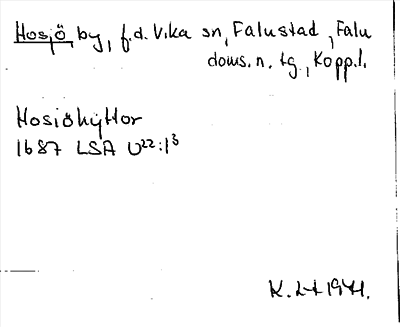 Hosjö by, f.d. Vika sn, Falustad, Falu
doms.n. tg., Kopp.l.
Hosiöhyttor
1687 LSA U22:1³
K. 1971.